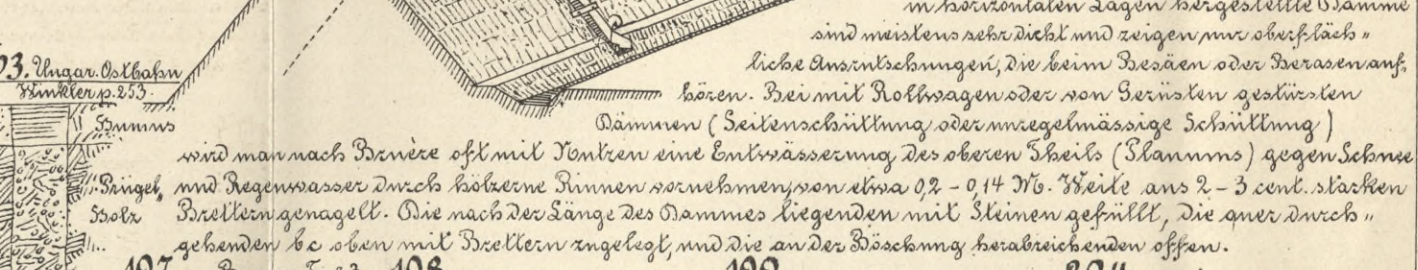 in horizontalen Lagen hergestellte Dämme
sind meistens sehr dicht und zeigen nur oberfläch-
liche Ausrutschungen, die beim Besäen oder Berasen auf-
hören. Bei mit Rollwagen oder von Gerüsten gestürzten
Dämmen (Seitenschüttung oder unregelmässige Schüttung)
wird man nach Bruère oft mit Nutzen eine Entwässerung des oberen Theils (Planums) gegen Schnee
und Regenwasser durch hölzerne Rinnen vornehmen, von etwa 0,2 - 0,14 M. Weite aus 2 - 3 cent. starken
Brettern genagelt. Die nach der Länge des Dammes liegenden mit Steinen gefüllt, die quer durch-
gehenden bc oben mit Brettern zugelegt, und die an der Böschung herabreichenden offen.
93. Ungar. Ostbahn
Winkler p. 253.
Humus
Prügel,
Holz
197
198
199